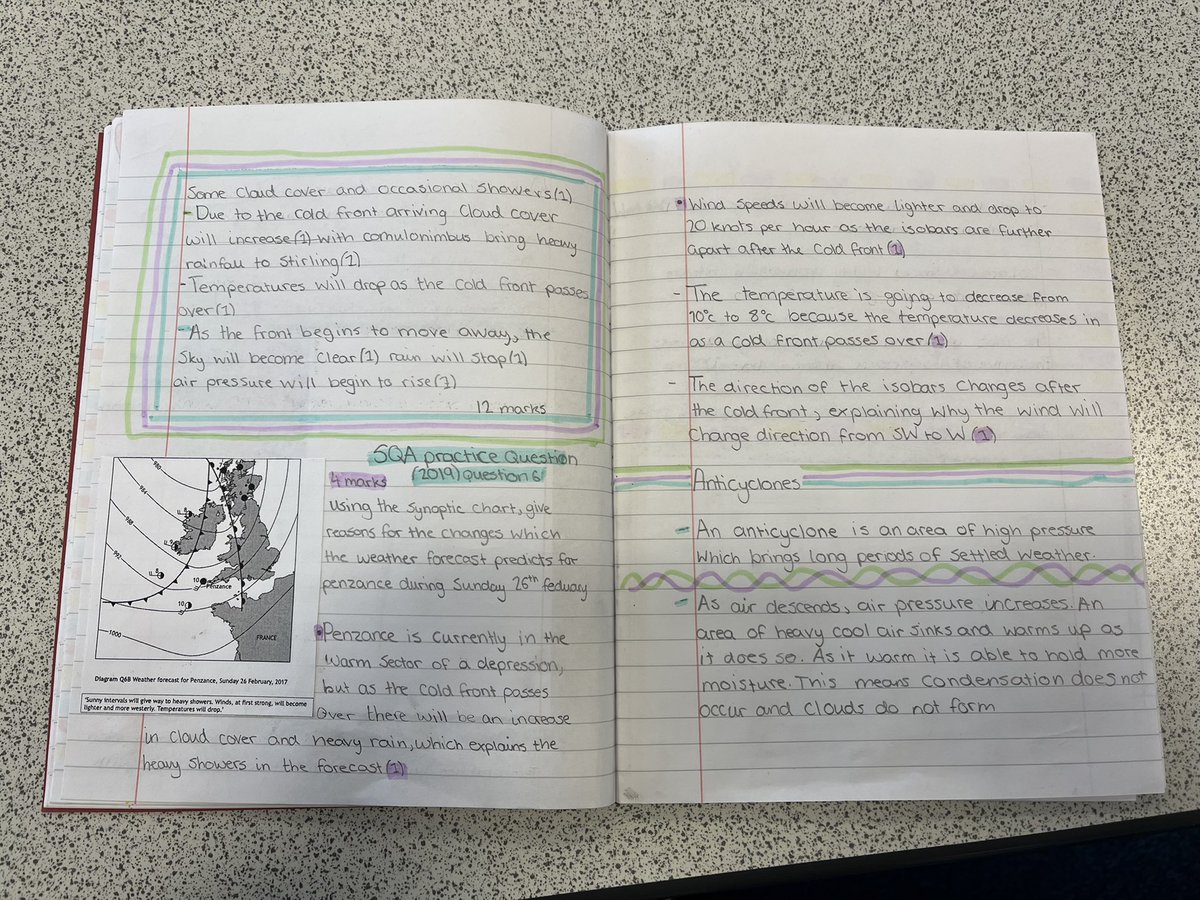 Some Cloud cover and occasional showers(1)
- Due to the cold front arriving Cloud cover
will increase(1) with comulonimbus bring heavy
rainfall to Stirling(1)
- Temperatures will drop as the cold front passes
over(1)
- As the front begins to move away, the
Sky will become clear(1) rain will stop(1)
air pressure will begin to rise(1)
12 marks
SQA practice Question
4 marks (2019) question 6
Using the synoptic chart, give
reasons for the changes which
the weather forecast predicts for
penzance during Sunday 26th feduary
Penzance is currently in the
warm sector of a depression,
but as the cold front passes
over there will be an increase
in cloud cover and heavy rain, which explains the
heavy showers in the forecast(1)
980
984
988
992
1000
10
Penzance
10
FRANCE
Diagram Q6B Weather forecast for Penzance, Sunday 26 February, 2017
'Sunny intervals will give way to heavy showers. Winds, at first strong, will become
lighter and more westerly. Temperatures will drop.'
• Wind speeds will become lighter and drop to
20 knots per hour as the isobars are further
apart after the cold front(1)
- The temperature is going to decrease from
10°c to 8°c because the temperature decreases in
as a cold front passes over(1)
- The direction of the isobars changes after
the cold front, explaining why the wind will
change direction from SW to W(1)
Anticyclones
- An anticyclone is an area of high pressure
which brings long periods of settled weather.
- As air descends, air pressure increases. An
area of heavy cool air sinks and warms up as
it does so. As it warm it is able to hold more
moisture. This means condensation does not
occur and clouds do not form